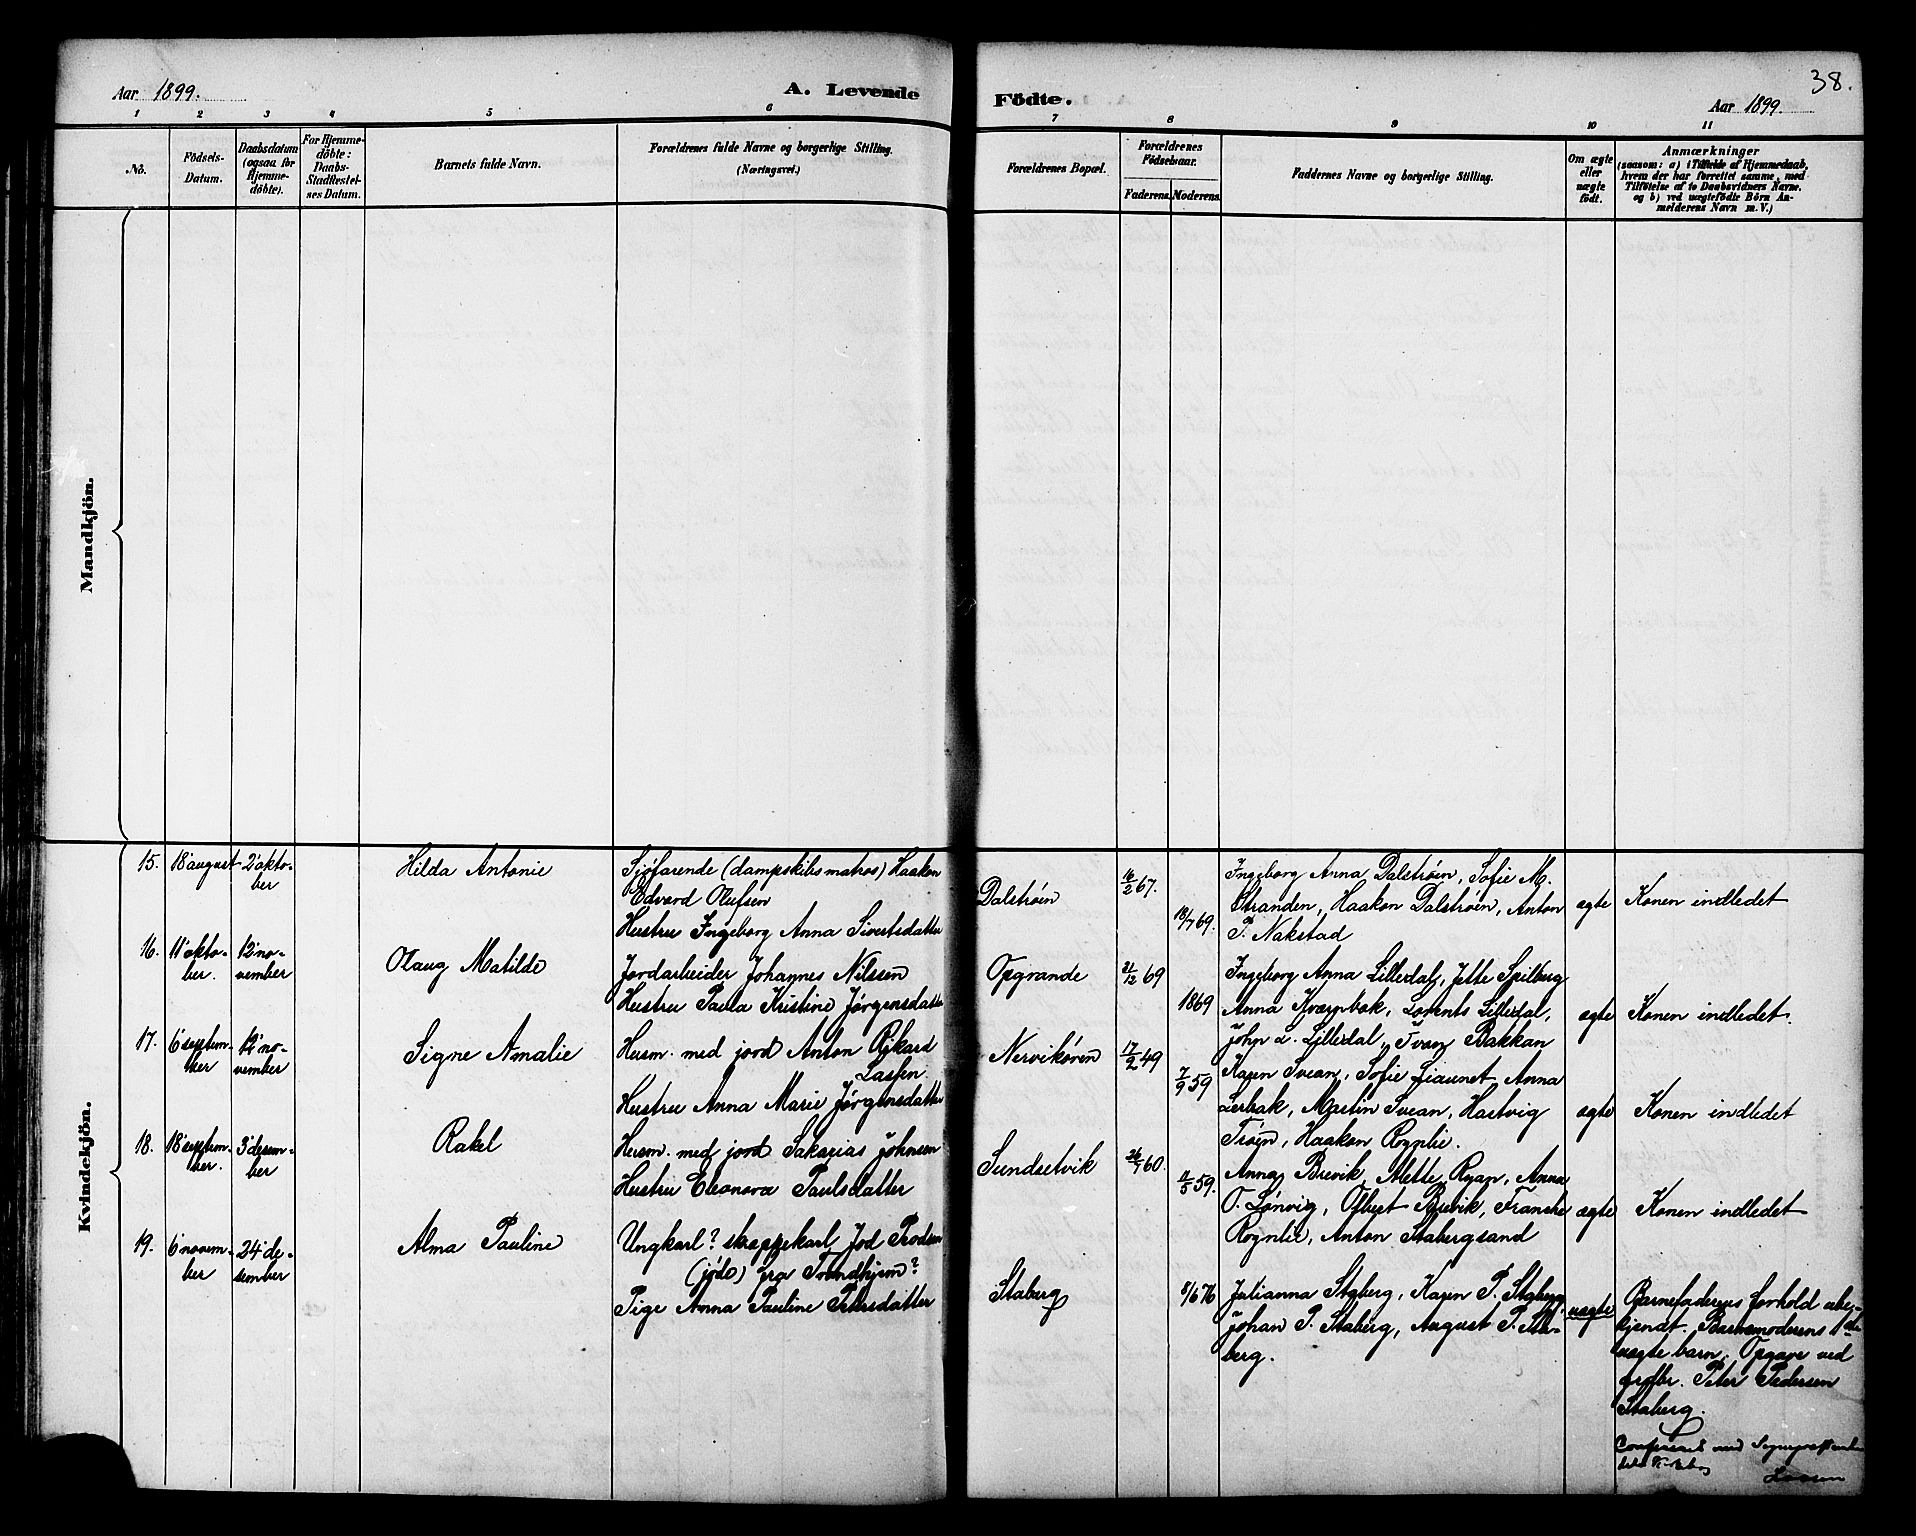 38.
Aar 1899.
A. Levende
Födte.
Aar 1899.
1 2 3 4 5 6 7 8 9 10 11
No.
Födsels-
Datum.
Daabsdatum
(ogsaa for
Hjemme-
döbte).
For Hjemme-
döbte:
Daabs-
Stadfæstel-
ses Datum.
Barnets fulde Navn.
Forældrenes fulde Navne og borgerlige Stilling.
(Næringsvei.)
Forældrenes Bopæl.
Forældrenes
Födselsaar.
Faderens. Moderens.
Faddernes Navne og borgerlige Stilling.
Om ægte
eller
uægte
födt.
Anmærkninger
(saasom: a) i Tilfælde af Hjemmedaab,
hvem der har forrettet samme, med
Tilföielse af to Daabsvidners Navne,
og b) ved uægtefödte Börn An-
melderens Navn m. V.)
Mandkjön.
Kvindekjön.
15.
18' august
2' okto-
ber
Hilda Antonie
Sjöfarende (dampskibsmatros) Haakon
Edvard Olufsen
Hustru Ingeborg Anna Sivertsdatter
Dalströin
16/2 67.
18/7 69.
Ingeborg Anna Dalströin, Sofie M.
Stranden, Haakon Dalströin, Anton
P. Nakstad
ægte
Konen indledet
16.
11' okto-
ber.
12' no-
vember
Olaug Matilde
Jordarbeider Johannes Nilssen
Hustru Paula Kristine Jørgensdatter
Opgrande
21/12 69
1869
Ingeborg Anna Lilledal, Jette Spilberg
Anna Kværnbak, Lorents Lilledal,
John L. Lilledal, Ivar Bakkan
ægte
Konen indledet.
17.
6' septem-
ber
12' no-
vember
Signe Amalie
Husm. med jord Anton Rikard
Lassen.
Hustru Anna Marie Jørgensdatter
Nervikören
17/2 49
7/9 59
Karen Svean, Sofie Liaunet, Anna
Lerbak, Martin Svean, Hartvig
Tröen, Haakon Rognlie.
ægte
Konen indledet
18.
18' septem-
ber.
3' desem-
ber
Rakel
Husm. med jord Sakarias Johnsen
Hustru Eleonora Paulsdatter
Sundsetvik
60.
59.
Anna Brevik, Alette Ryan, Anna
O. Lönvig, Olbert Brevik, Frantse
Rognlie, Anton Stabergsand
ægte
Konen indledet
19.
6' novem-
ber
24' de-
sember
Alma Pauline
Ungkarl? skreppekarl Jod
(jöde) fra Trondhjem?
Pige Anna Pauline Petersdatter
Staberg
8/6 76
Julianna Staberg, Karen P. Staberg,
Johan P. Staberg, August P. Sta-
berg.
uægte
Barnefaderens forhold ube-
kjendt. Barnemoderens 1ste
uægte barn. Opgave ved
Peter Pedersen
Staberg.
Confereret med